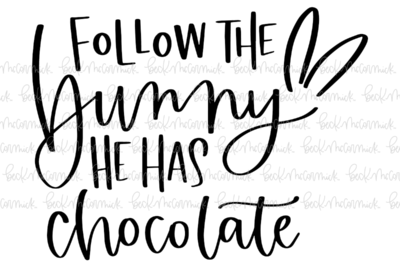 FOLLOW THE
bunny
HE HAS
chocolate